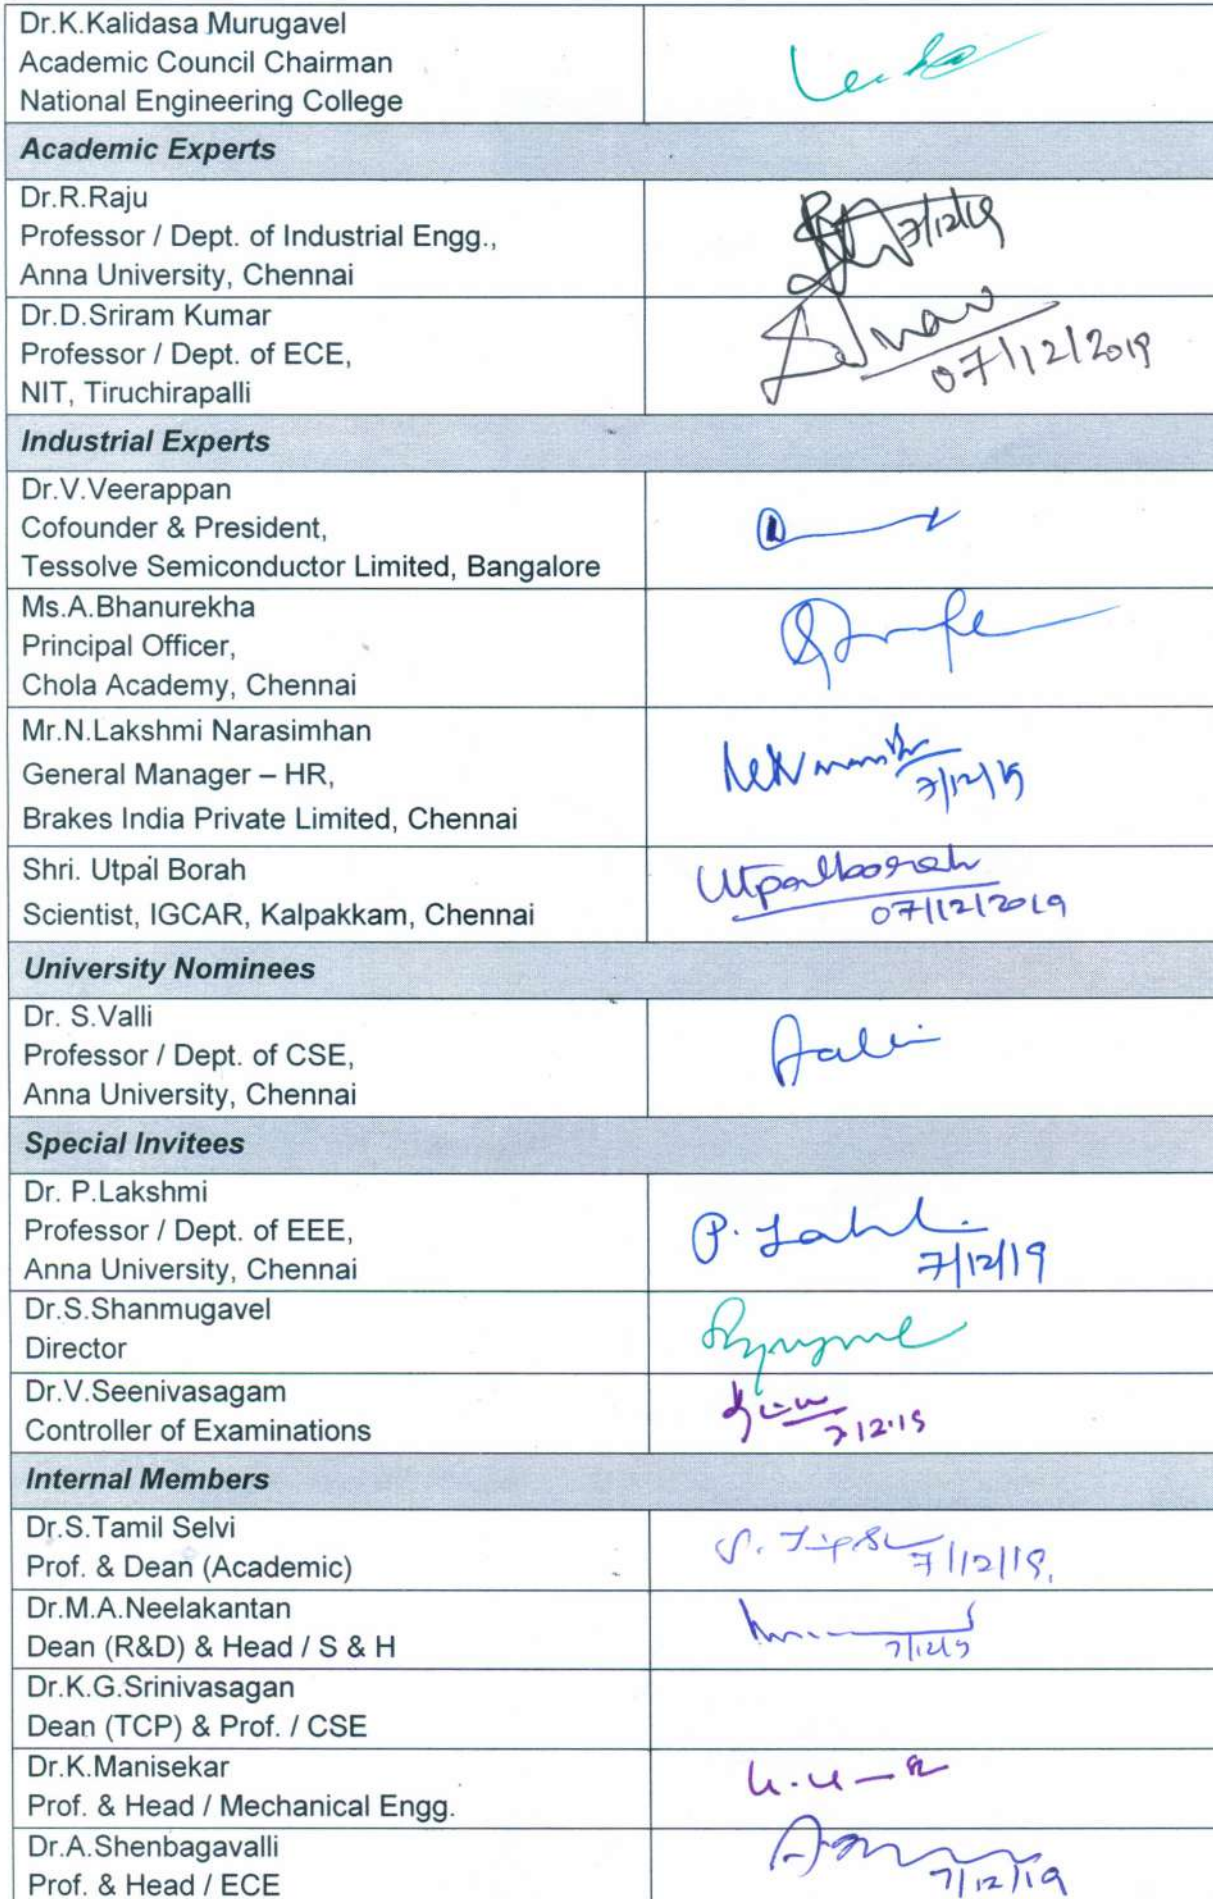 Dr.K.Kalidasa Murugavel
Academic Council Chairman
National Engineering College
Academic Experts
Dr.R.Raju
Professor / Dept. of Industrial Engg.,
Anna University, Chennai
7/12/19
Dr.D.Sriram Kumar
Professor / Dept. of ECE,
NIT, Tiruchirapalli
07/12/2019
Industrial Experts
Dr.V.Veerappan
Cofounder & President,
Tessolve Semiconductor Limited, Bangalore
Ms.A.Bhanurekha
Principal Officer,
Chola Academy, Chennai
Mr.N.Lakshmi Narasimhan
General Manager – HR,
Brakes India Private Limited, Chennai
7/12/19
Shri. Utpal Borah
Scientist, IGCAR, Kalpakkam, Chennai
Utpalborah
07/12/2019
University Nominees
Dr. S.Valli
Professor / Dept. of CSE,
Anna University, Chennai
Special Invitees
Dr. P.Lakshmi
Professor / Dept. of EEE,
Anna University, Chennai
P.
7/12/19
Dr.S.Shanmugavel
Director
Dr.V.Seenivasagam
Controller of Examinations
7.12.19
Internal Members
Dr.S.Tamil Selvi
Prof. & Dean (Academic)
7/12/19.
Dr.M.A.Neelakantan
Dean (R&D) & Head / S & H
7/12/19
Dr.K.G.Srinivasagan
Dean (TCP) & Prof. / CSE
Dr.K.Manisekar
Prof. & Head / Mechanical Engg.
Dr.A.Shenbagavalli
Prof. & Head / ECE
7/12/19